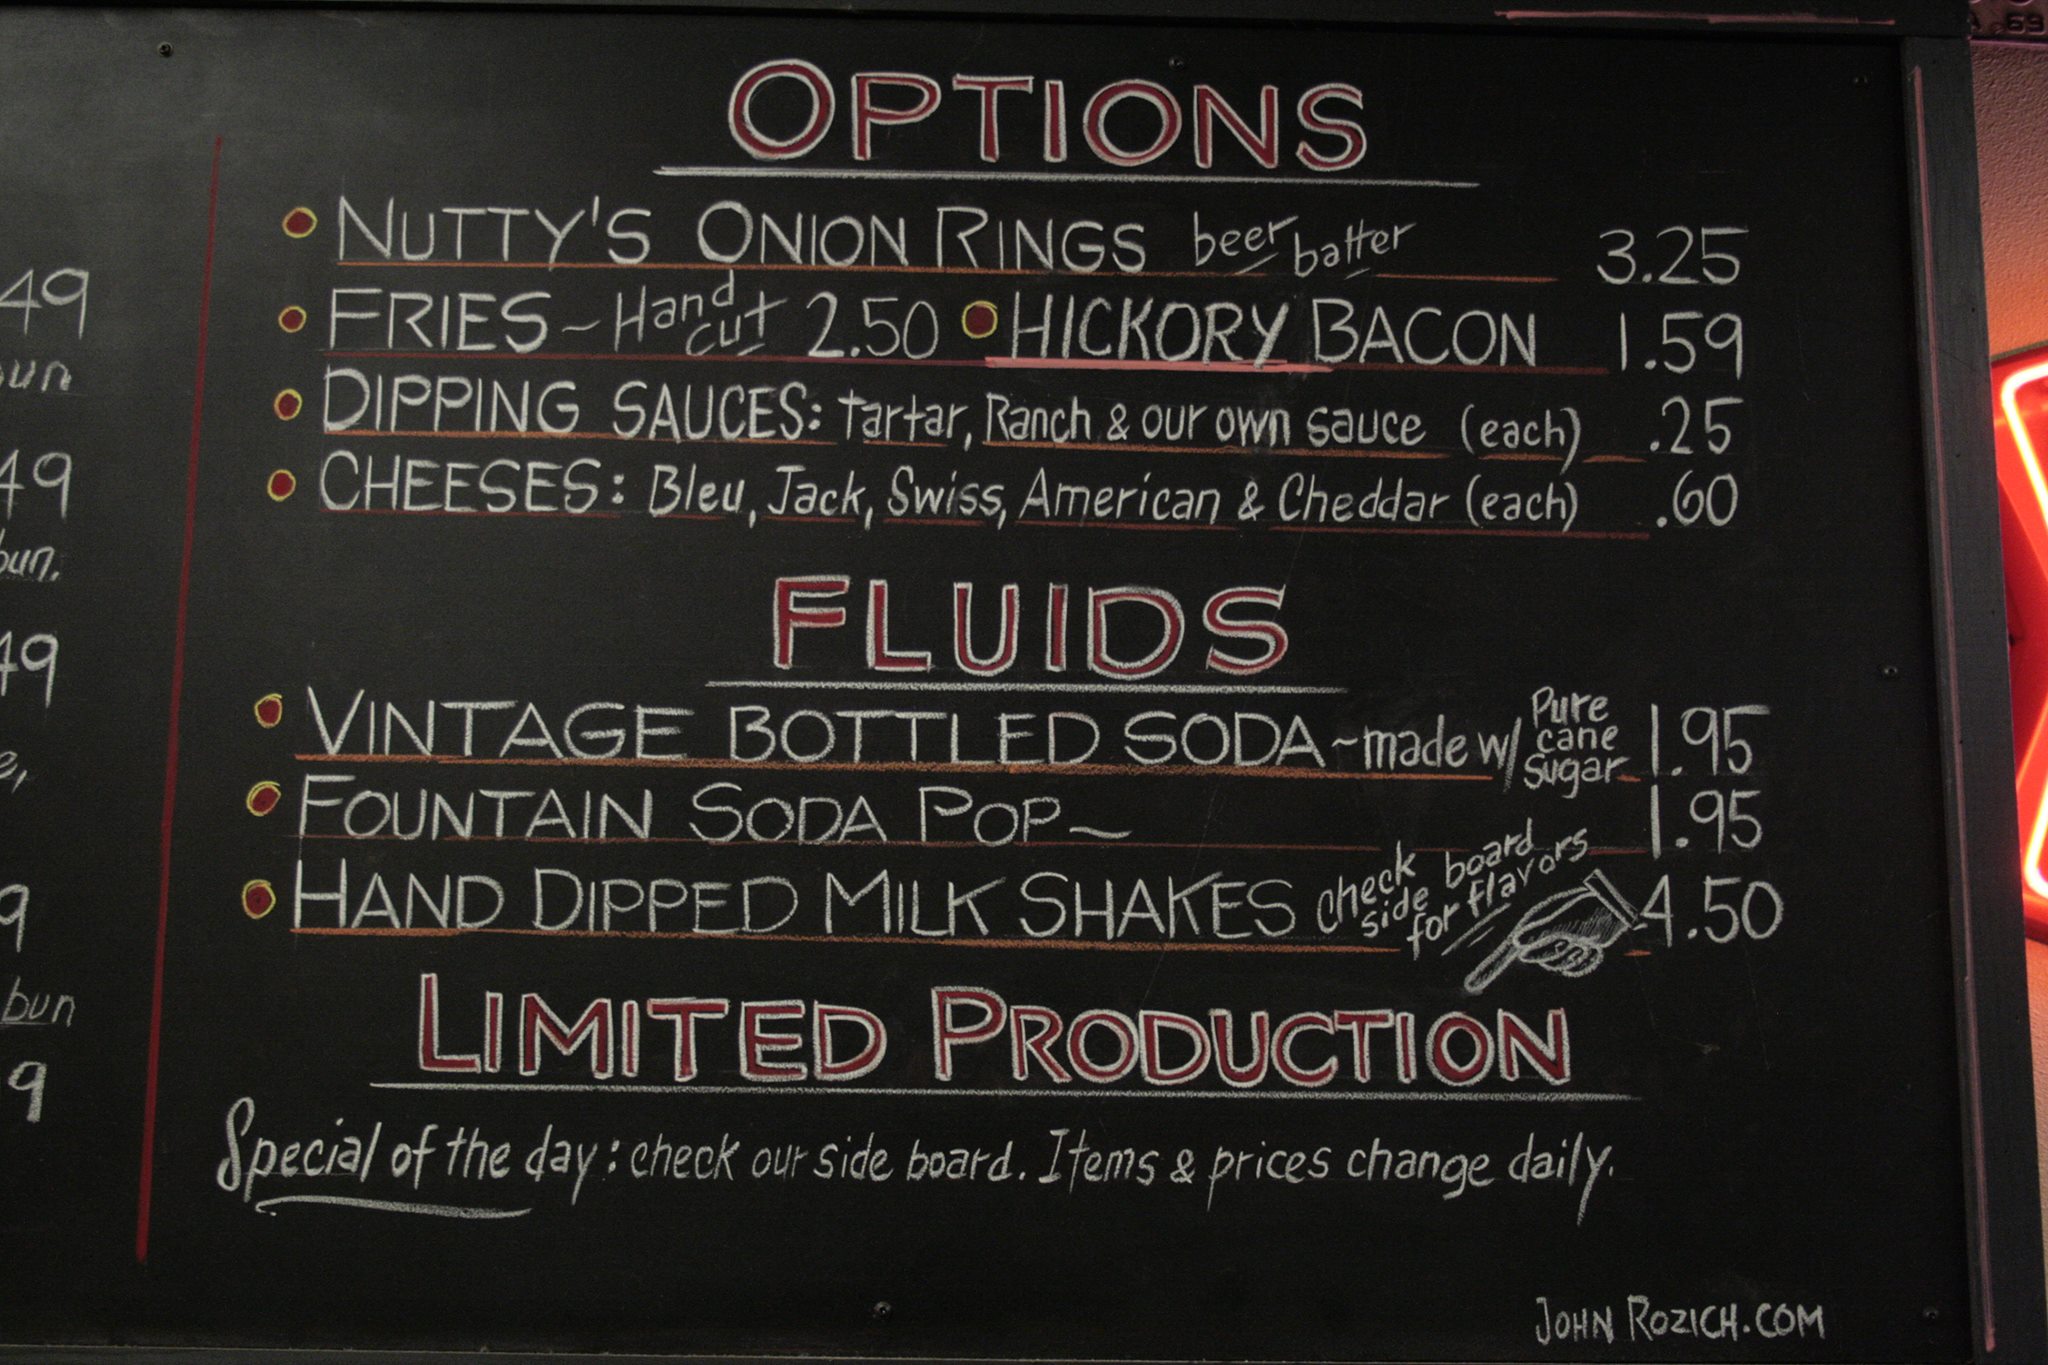 OPTIONS
NUTTY'S ONION RINGS beer batter 3.25
FRIES ~ Hand cut 2.50 HICKORY BACON 1.59
DIPPING SAUCES: tartar, Ranch & our own sauce (each) .25
CHEESES: Bleu, Jack, Swiss, American & Cheddar (each) .60
FLUIDS
VINTAGE BOTTLED SODA ~ made w/ Pure cane sugar 1.95
FOUNTAIN SODA POP ~ 1.95
HAND DIPPED MILK SHAKES check side board for flavors 4.50
LIMITED PRODUCTION
Special of the day: check our side board. Items & prices change daily.
JOHN ROZICH.COM
49
bun
49
bun.
49
e,
9
bun
9
69